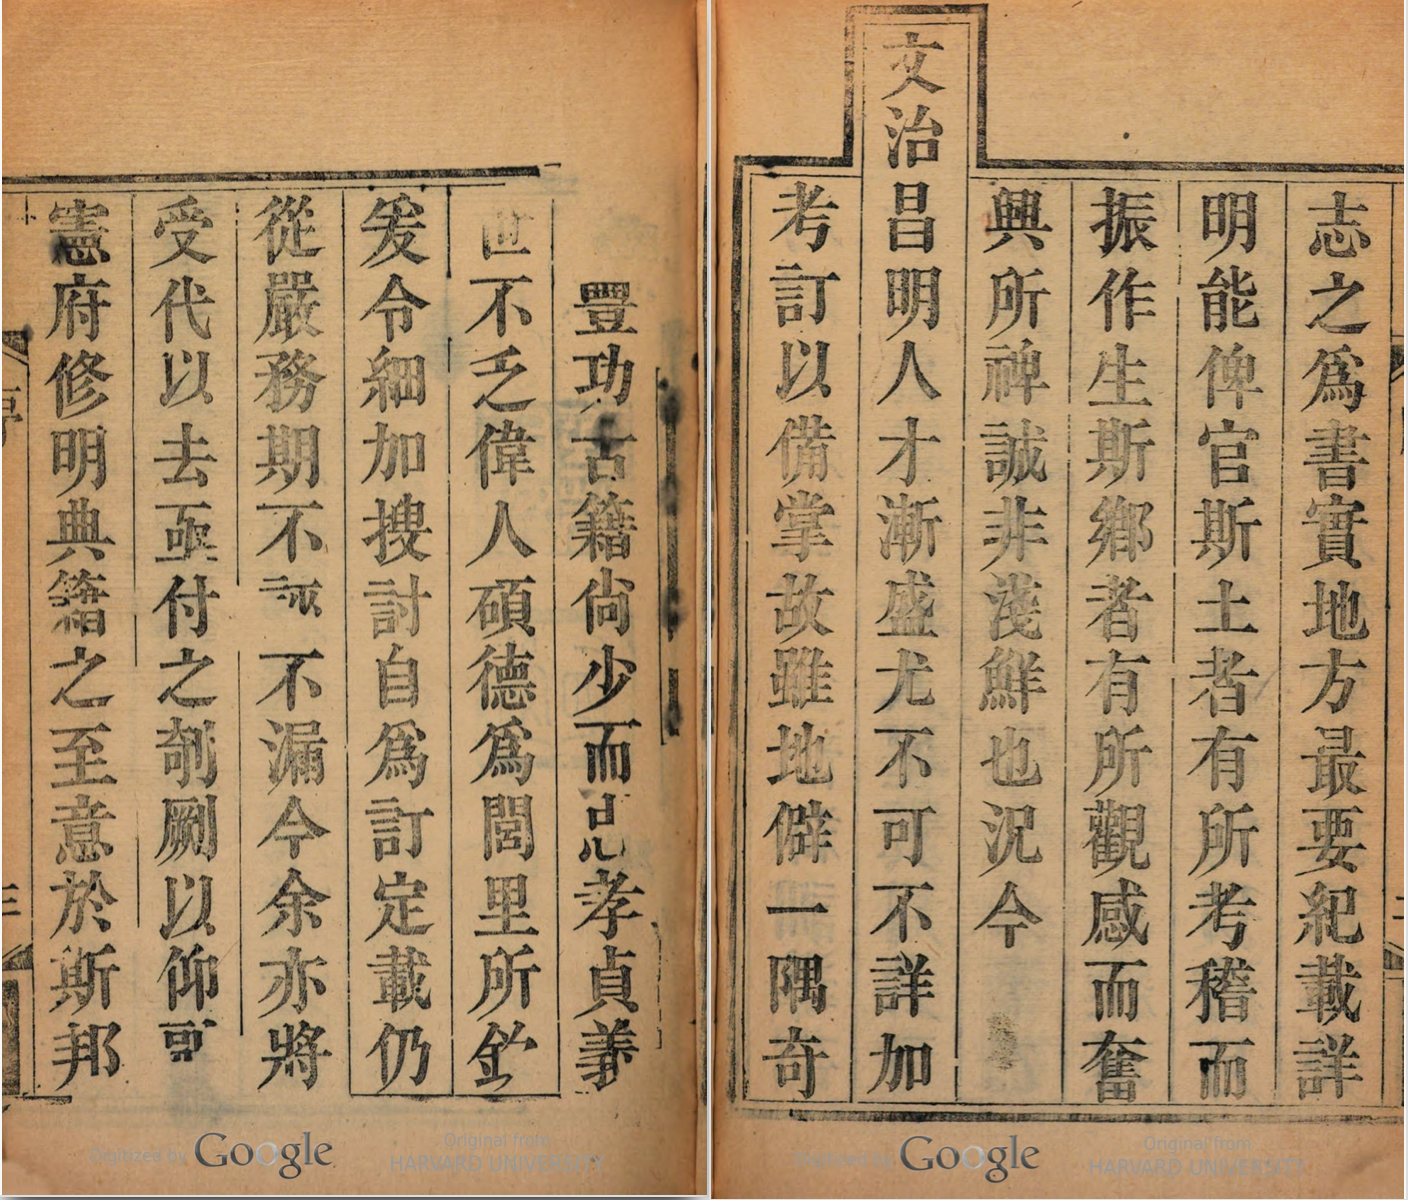 志之爲書實地方最要紀載詳
明能俾官斯土者有所考稽而
振作生斯鄉者有所觀感而奮
興所裨誠非淺鮮也況今
文治昌明人才漸盛尤不可不詳加
考訂以備掌故雖地僻一隅奇
豐功古籍尙少而忠孝貞義
世不乏偉人碩德爲閭里所欽
爰令細加搜討自爲訂定載仍
從嚴務期不不漏今余亦將
受代以去亟付之剞劂以仰
憲府修明典籍之至意於斯邦
序
二
Digitized by Google
Original from
HARVARD UNIVERSITY
Digitized by Google
Original from
HARVARD UNIVERSITY